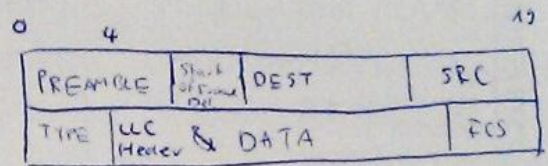 0 4 15
PREAMBLE Start of Frame Del DEST SRC
TYPE LLC Header & DATA FCS